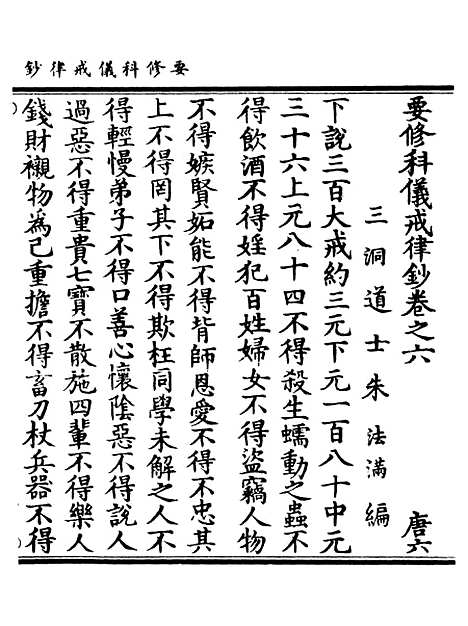 要修科儀戒律鈔
要修科儀戒律鈔卷之六　唐六
三洞道士朱法滿編
下說三百大戒約三元下元一百八十中元
三十六上元八十四不得殺生蠕動之蟲不
得飲酒不得婬犯百姓婦女不得盜竊人物
不得嫉賢妬能不得背師恩愛不得不忠其
上不得罔其下不得欺枉同學未解之人不
得輕慢弟子不得口善心懷陰惡不得說人
過惡不得重貴七寶不散施四輩不得樂人
錢財襯物為已重擔不得畜刀杖兵器不得